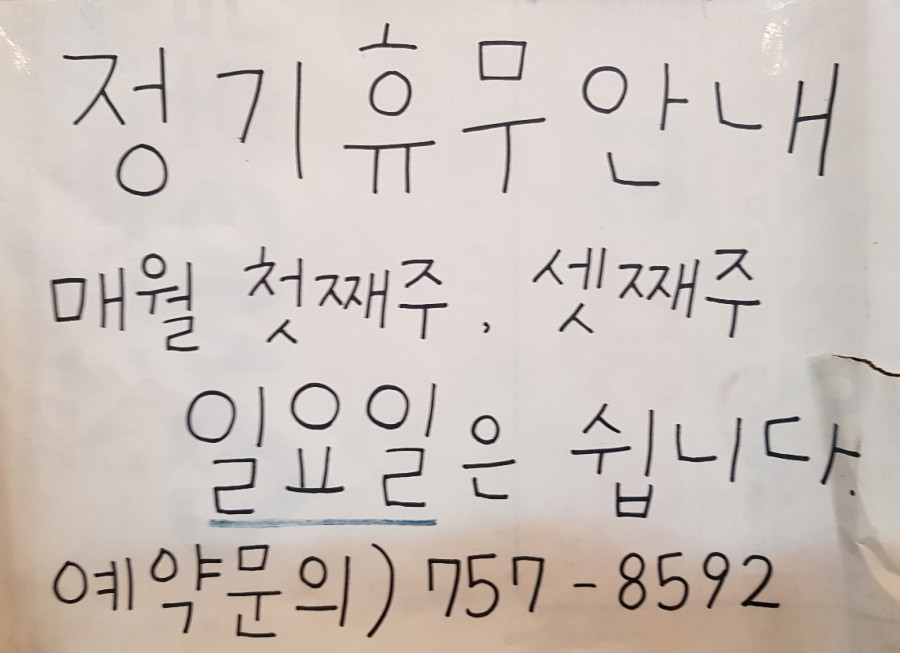 정기휴무안내
매월 첫째주, 셋째주
일요일은 쉽니다.
예약문의) 757-8592